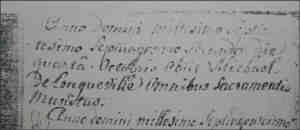 Anno Domini millesimo Septin
tesimo Septuagesimo Secundo die
quarta Octobris obiit Michael
De Longueville Omnibus Sacramentis
Munitus.
Anno Domini millesimo Septingentesimo